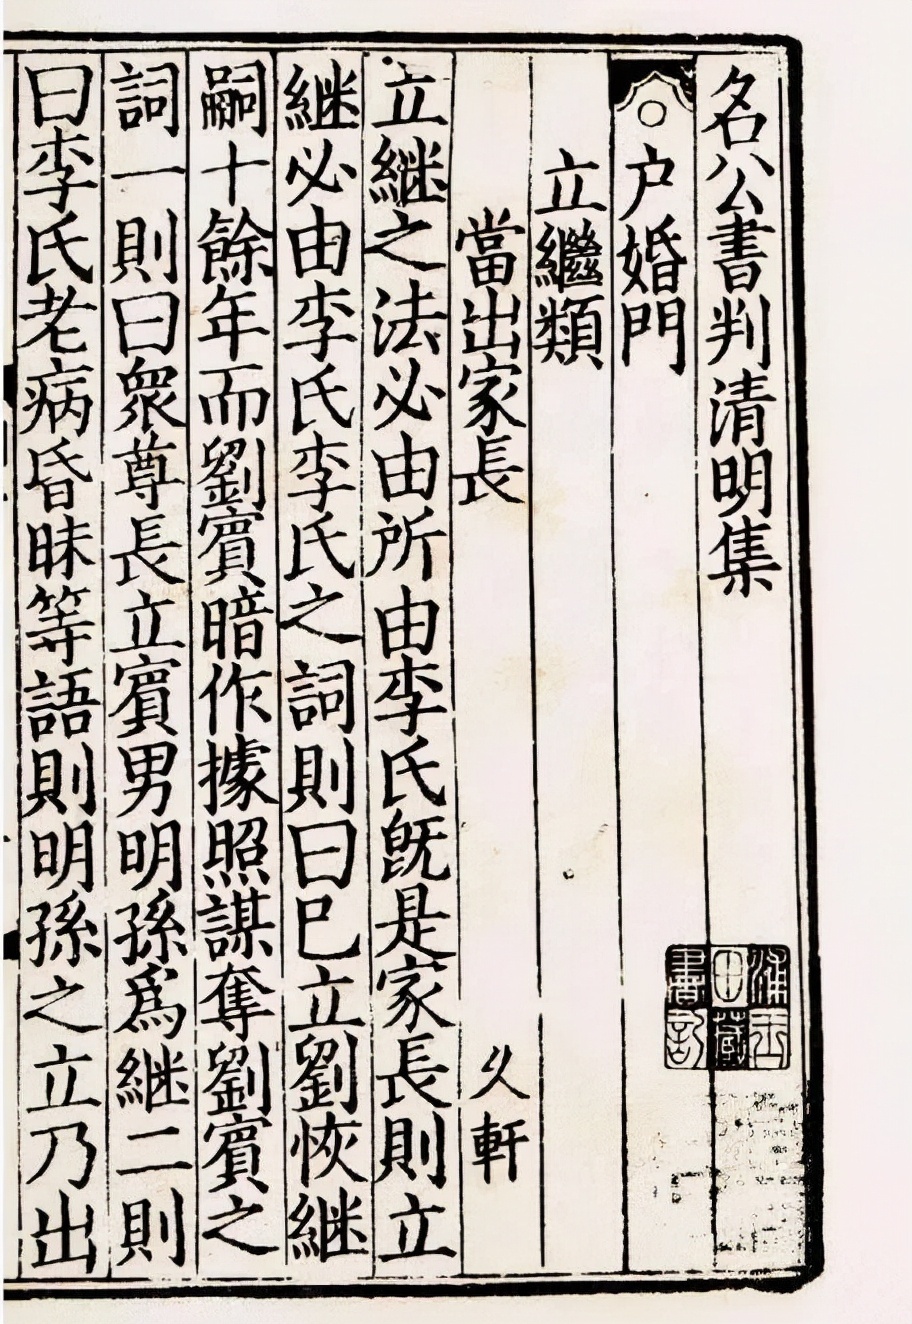 名公書判清明集
户婚門
立繼類
當出家長 乆軒
立継之法必由所由李氏旣是家長則立
継必由李氏李氏之詞則曰已立劉恢継
嗣十餘年而劉賔暗作據照謀奪劉賔之
詞一則曰衆尊長立賔男明孫爲継二則
曰李氏老病昏昧等語則明孫之立乃出